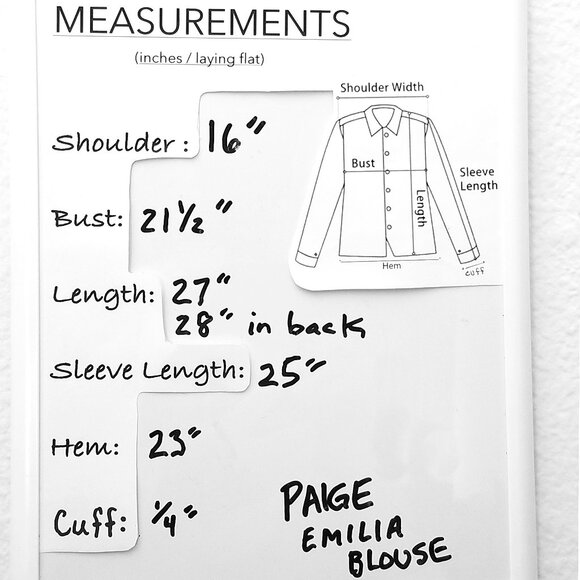 MEASUREMENTS
(inches / laying flat)
Shoulder : 16"
Bust: 21 1/2"
Length: 27"
28" in back
Sleeve Length: 25"
Hem: 23"
Cuff: 1/4"
Shoulder Width
Bust
Length
Sleeve
Length
Hem
cuff
PAIGE
EMILIA
BLOUSE